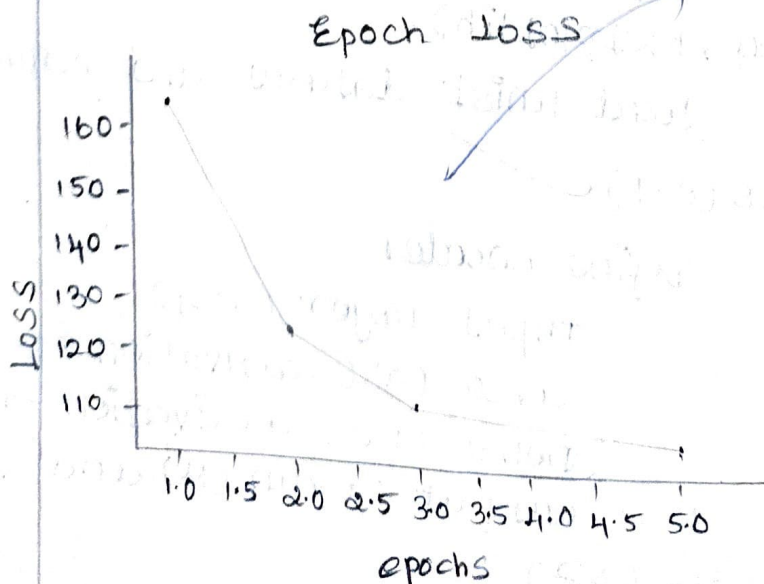 Epoch Loss
160
150
140
130
120
110
Loss
1.0 1.5 2.0 2.5 3.0 3.5 4.0 4.5 5.0
epochs